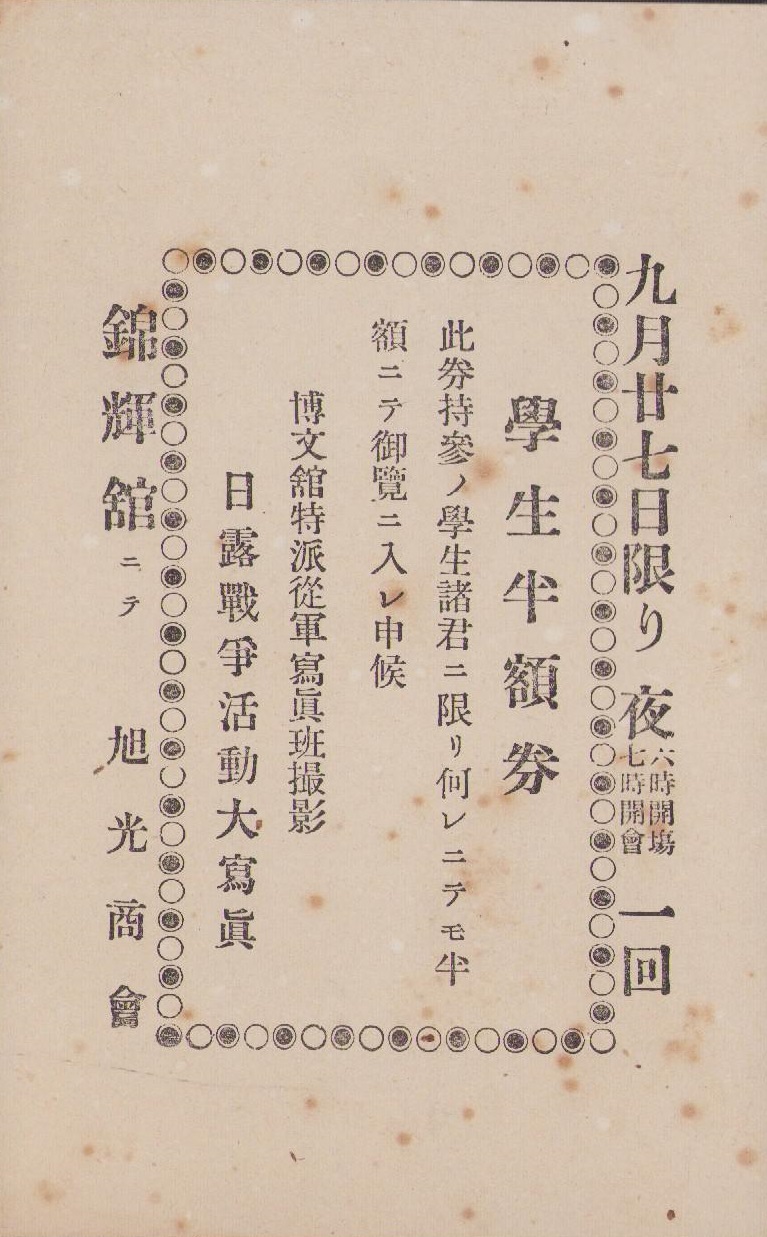 九月廿七日限り 夜 六時開塲 七時開會 一回
學生半額券
此券持參ノ學生諸君ニ限リ何レニテモ半
額ニテ御覽ニ入レ申候
博文舘特派從軍寫眞班撮影
日露戰爭活動大寫眞
錦輝舘ニテ 旭光商會